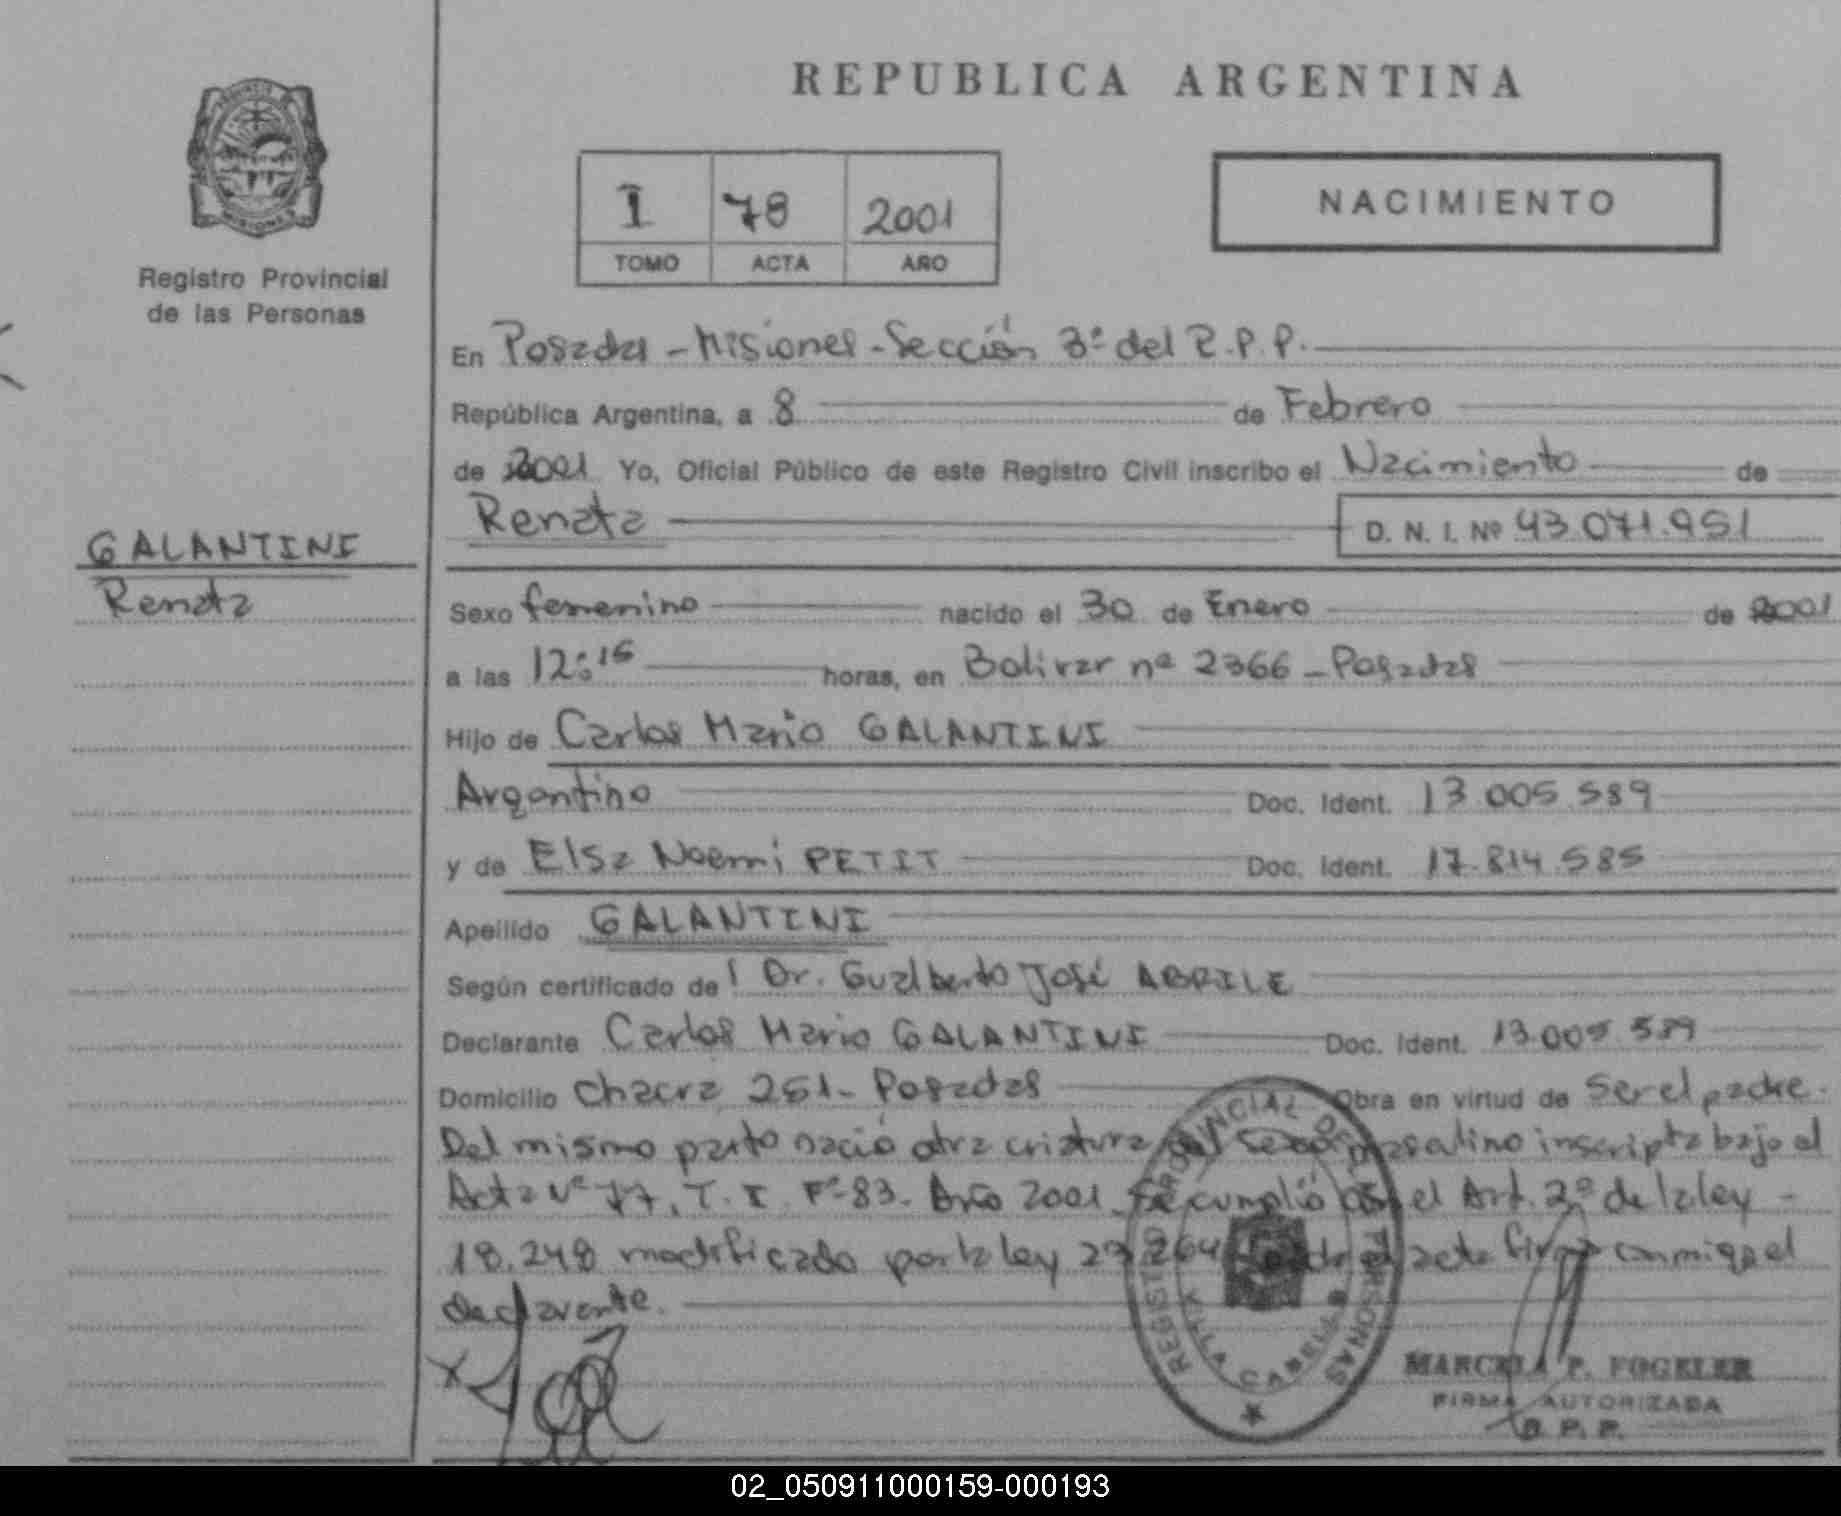 REPUBLICA ARGENTINA
PROVINCIA DE
MISIONES
Registro Provincial
de las Personas
I 78 2001
TOMO ACTA AÑO
NACIMIENTO
En Posadas - Misiones - Sección 3ª del R.P.P.
República Argentina, a 8 de Febrero
de 2001 Yo, Oficial Público de este Registro Civil inscribo el Nacimiento de
Renata D. N. I. Nº 43.071.951
GALANTINI
Renata
Sexo femenino nacido el 30 de Enero de 2001
a las 12:15 horas, en Bolivar nº 2366 - Posadas
Hijo de Carlos Mario GALANTINI
Argentino Doc. Ident. 13.005.589
y de Elsa Noemi PETIT Doc. Ident. 17.814.585
Apellido GALANTINI
Según certificado del Dr. Gualberto José ABRILE
Declarante Carlos Mario GALANTINI Doc. Ident. 13.005.589
Domicilio Chacra 251 - Posadas Obra en virtud de ser el padre.
Del mismo parto nació otra criatura del sexo masculino inscripta bajo el
Acta Nº 77, T. I. Fº 83. Año 2001. Se cumplió con el Art. 2º de la ley -
18.248 modificado por la ley 23264 acta firma conmigo el
declarante.
REGISTRO PROVINCIAL DE LAS PERSONAS
VILLA CABELLO
MARCELA P. FOGELER
FIRMA AUTORIZADA
R. P. P.
02_050911000159-000193